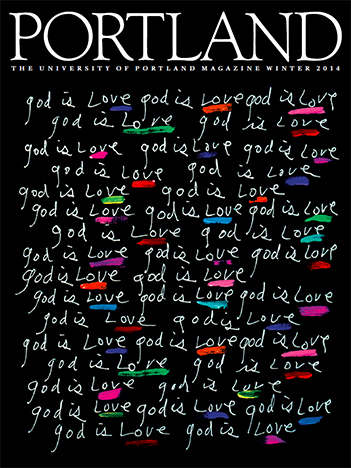 PORTLAND
THE UNIVERSITY OF PORTLAND MAGAZINE WINTER 2014
god is Love god is Love god is Love
god is Love god is Love
god is Love god is Love god is Love
god is Love god is Love
god is Love god is Love god is Love
god is Love god is Love god is Love
god is Love god is Love
god is Love god is Love god is Love
god is Love god is Love
god is Love god is Love god is Love
god is Love god is Love
god is Love god is Love god is Love
god is Love god is Love
god is Love god is Love
god is Love god is Love god is Love
god is Love god is Love